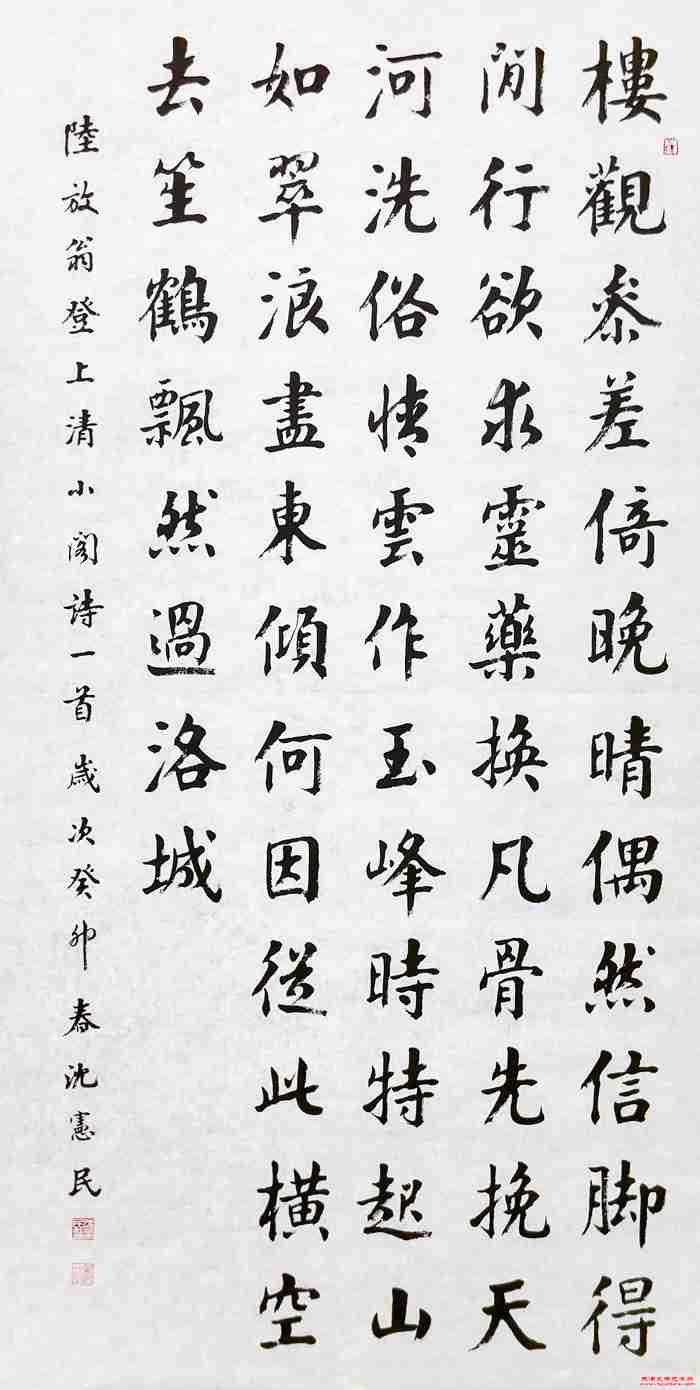 樓觀參差倚晚晴偶然信脚得
閒行欲求靈藥換凡骨先挽天
河洗俗情雲作玉峰時特起山
如翠浪盡東傾何因從此橫空
去笙鶴飄然過洛城
陸放翁登上清小閣詩一首歲次癸卯春沈憲民